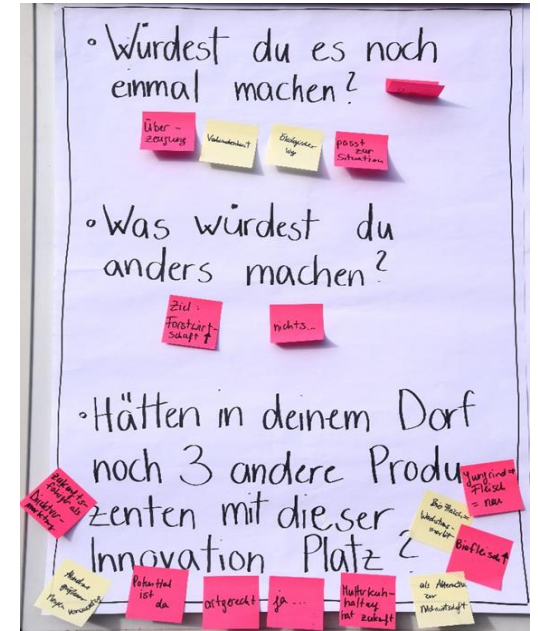 • Würdest du es noch
einmal machen?
Über-
zeugung
Ökologischer
Weg
passt
zur
Situation
• Was würdest du
anders machen?
Ziel:
Forstwirt-
schaft ↑
nichts...
• Hätten in deinem Dorf
noch 3 andere Produ
zenten mit dieser
Innovation Platz?
zukunfts-
fähiger als
Direktver-
marktung
Jungrind
Fleisch
= neu
Biofleisch
Wachstums-
markt
Biofleisch ↑
Potential
ist
da
artgerecht
ja...
Mutterkuh-
haltung
hat Zukunft
als Alternative
zur
Milchwirtschaft